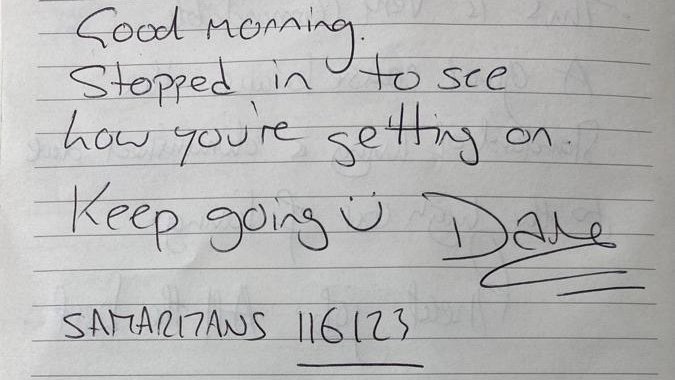 Good morning.
Stopped in to see
how you're getting on.
Keep going Dave
SAMARITANS 116123